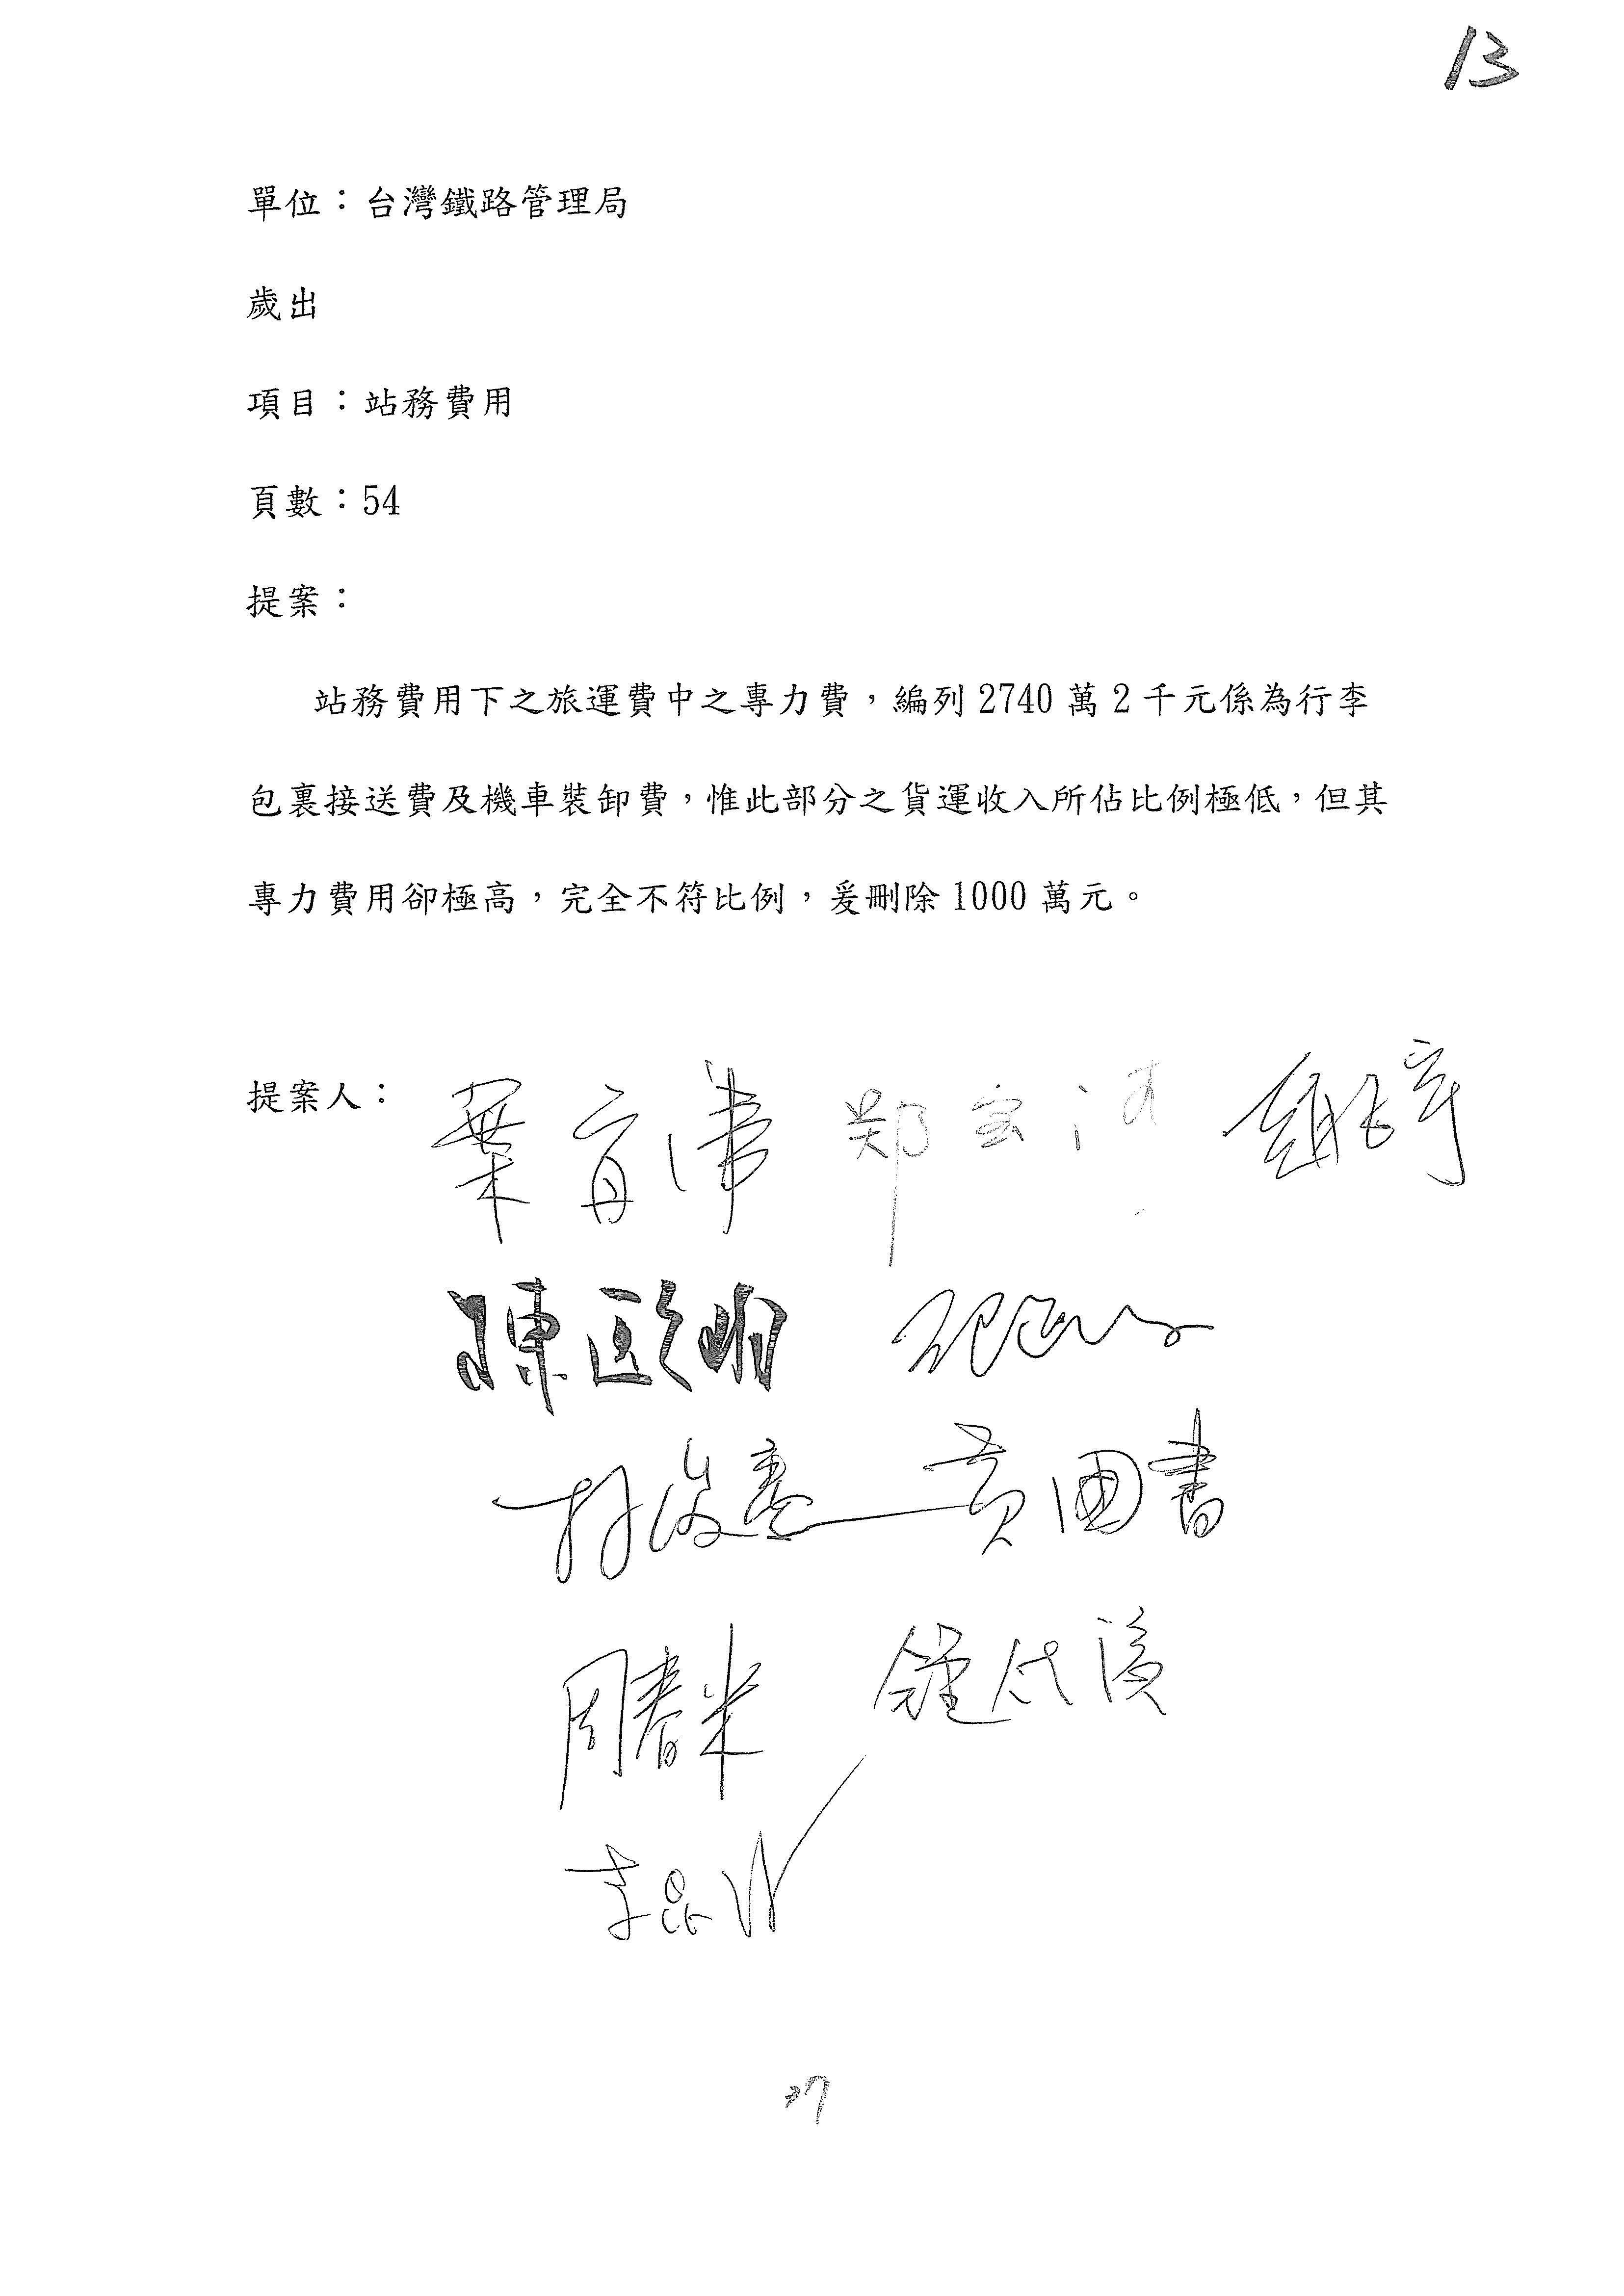 13
單位：台灣鐵路管理局
歲出
項目：站務費用
頁數：54
提案：
站務費用下之旅運費中之專力費，編列 2740 萬 2 千元係為行李
包裹接送費及機車裝卸費，惟此部分之貨運收入所佔比例極低，但其
專力費用卻極高，完全不符比例，爰刪除 1000 萬元。
提案人：
葉宜津 鄭宝清
陳歐珀
林俊憲 黃国書
周春米
李昆澤
37